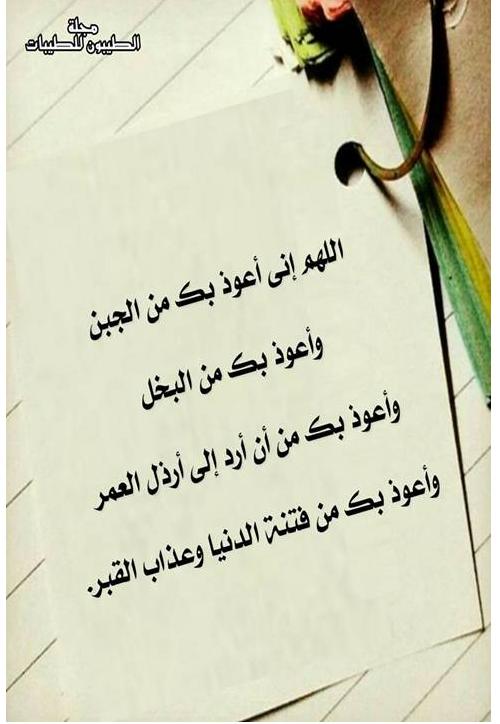 مجلة
الطيبون للطيبات
اللهم إنى أعوذ بك من الجبن
وأعوذ بك من البخل
وأعوذ بك من أن أرد إلى أرذل العمر
وأعوذ بك من فتنة الدنيا وعذاب القبر.